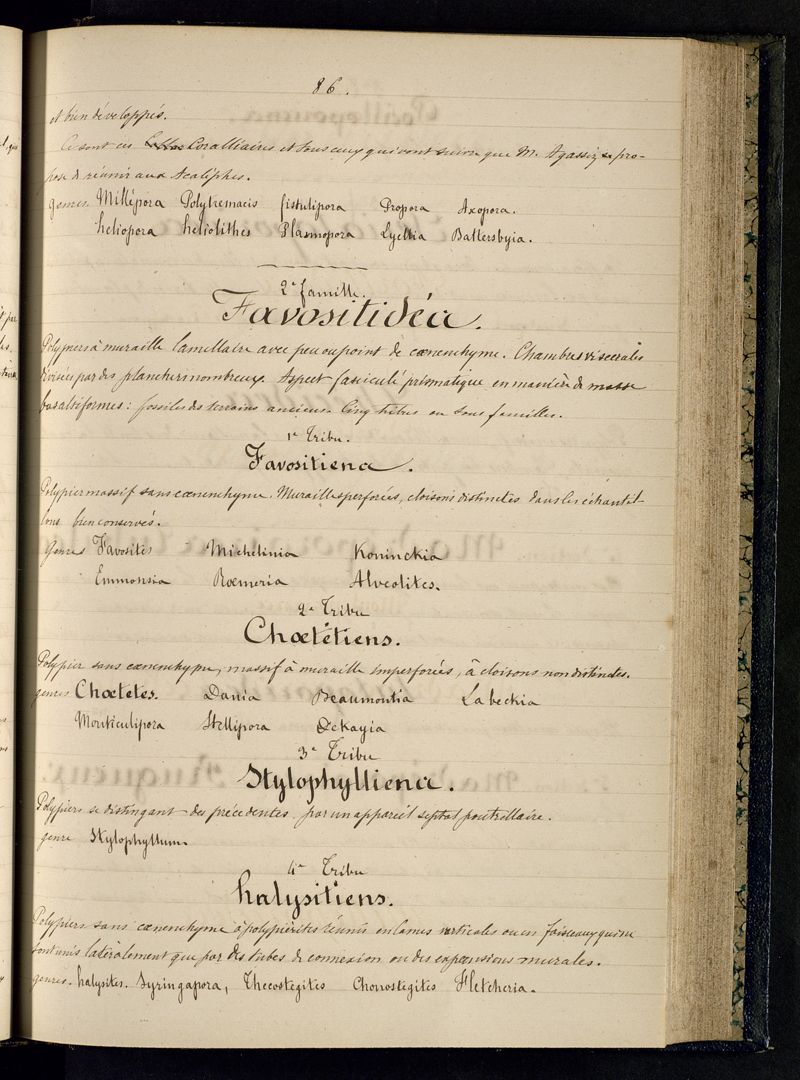 86.
et bien développés.
Ce sont ces Coralliaires et tous ceux qui vont suivre que M. Agassiz pro-
pose de réunir aux Acalèphes.
genres Millépora Polytremacis fistulipora Propora Axopora.
heliopora heliolithes Plasmopora Lyellia Battersbyia.
2e famille.
Favositidéa.
Polypiers à muraille lamellaire avec peu ou point de cœnenchyme. Chambres viscerales
divisées par des planchers nombreux. Aspect fasciculé prismatique en manière de masse
basaltiformes: fossiles des terrains anciens. Cinq tribus ou sous familles.
1e Tribu.
Favositiena.
Polypier massif sans cœnenchyme. Murailles perforées, cloisons distinctes dans les échantil
lons bien conservés.
Genres Favosites Michelinia Koninckia
Emmonsia Rœmeria Alveolites.
2e Tribu
Chœtétiens.
Polypier sans cœnenchyme, massif à muraille imperforées, à cloisons non distinctes.
genres Chœtetes. Dania Beaumontia Labechia
Monticulipora Stellipora Dekayia
3e Tribu
Stylophylliena.
Polypiers se distingant des précédentes par un appareil septal poutrellaire.
genre Stylophyllum.
4e Tribu
halysitiens.
Polypiers sans cœnenchyme à polypiérites réunis en lames verticales ou en faisceaux qui ne
sont unis latéralement que par des tubes de connexion ou des expansions murales.
genres. halysites. Syringapora, Thecostegites Chonostégites Fletcheria.